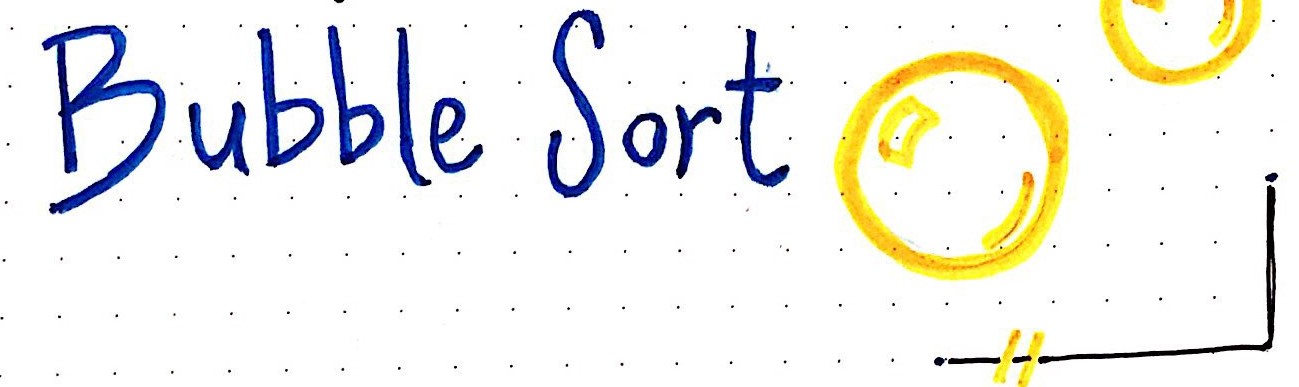 Bubble Sort